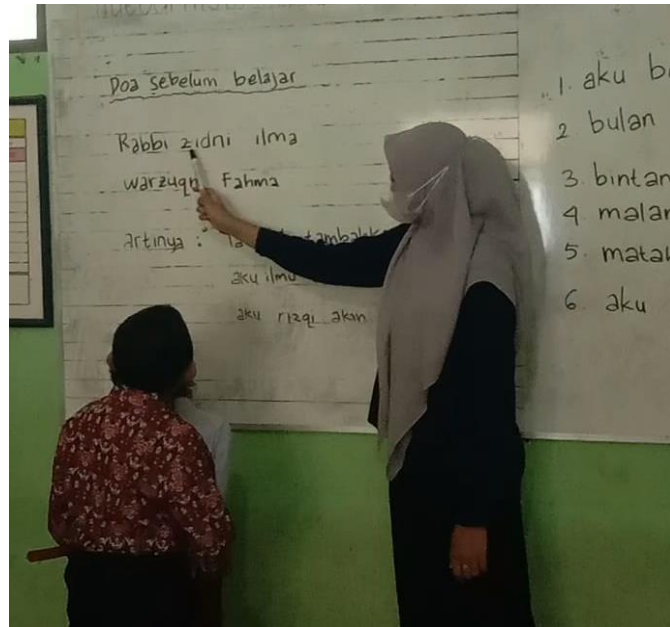 Doa sebelum belajar
Rabbi zidni ilma
warzuqni Fahma
artinya :
aku ilmu
aku rizqi akan
1. aku
2 bulan
3. bintan
4. malam
5. matah
6. aku